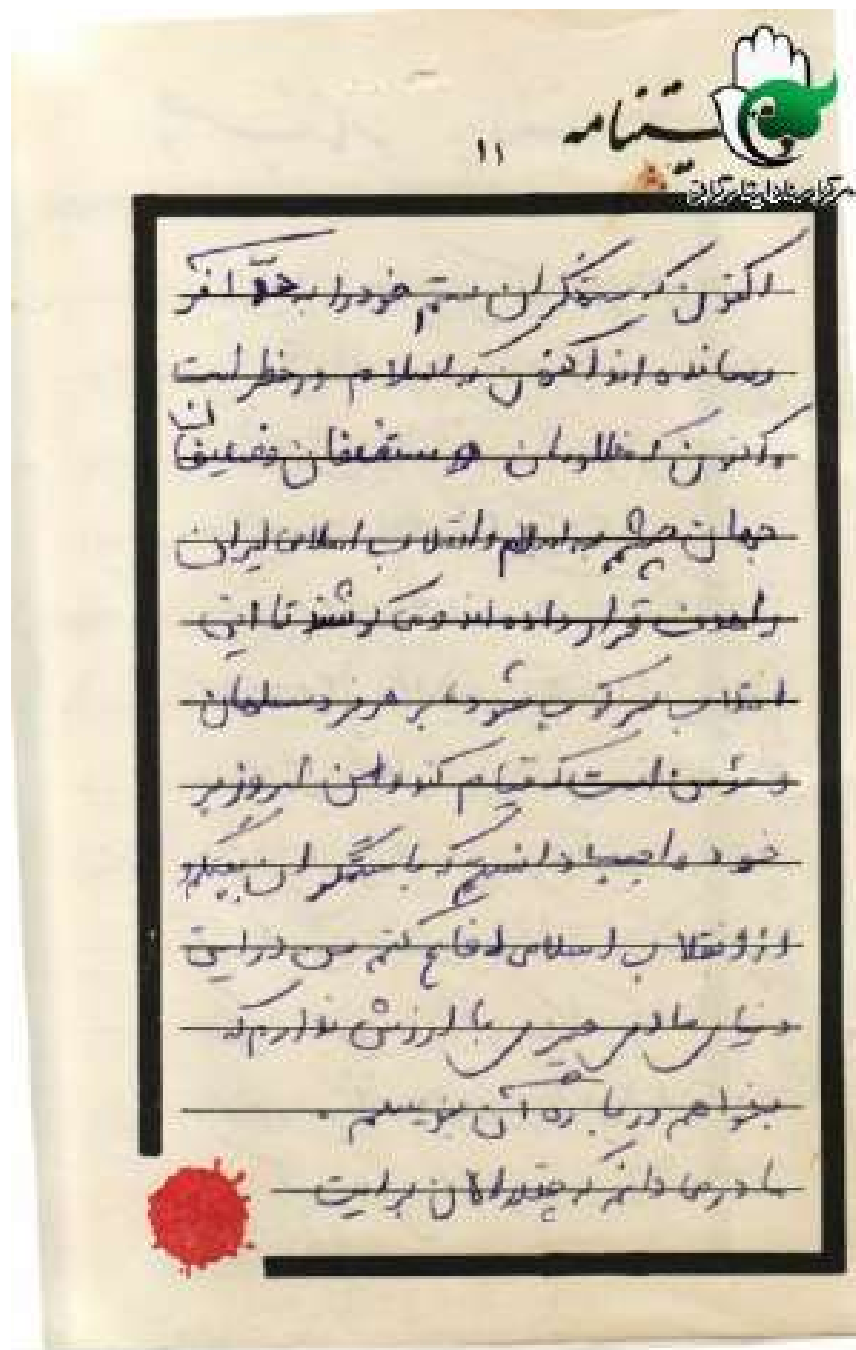 وصیتنامه
۱۱
مرکز اسناد ایثارگران
اکنون که ستمگران ستم خود را به حدّ آخر
رسانده اند اکنون که اسلام در خطر است
و اکنون که مظلومان و مستضعفان و ضعیفان
جهان چشم به اسلام و انقلاب اسلامی ایران
را هدف قرار داده اند و می کوشند تا این
انقلاب سرکوب شود، بر هر فرد مسلمان
و مؤمن است که قیام کند و من امروز بر
خود واجب دانستم که با ستمگران بجنگم و
از انقلاب اسلامی دفاع کنم من در این
دنیای مادی چیزی با ارزش ندارم که
بخواهم درباره آن بنویسم .
مادر می دانم که چقدر برایت